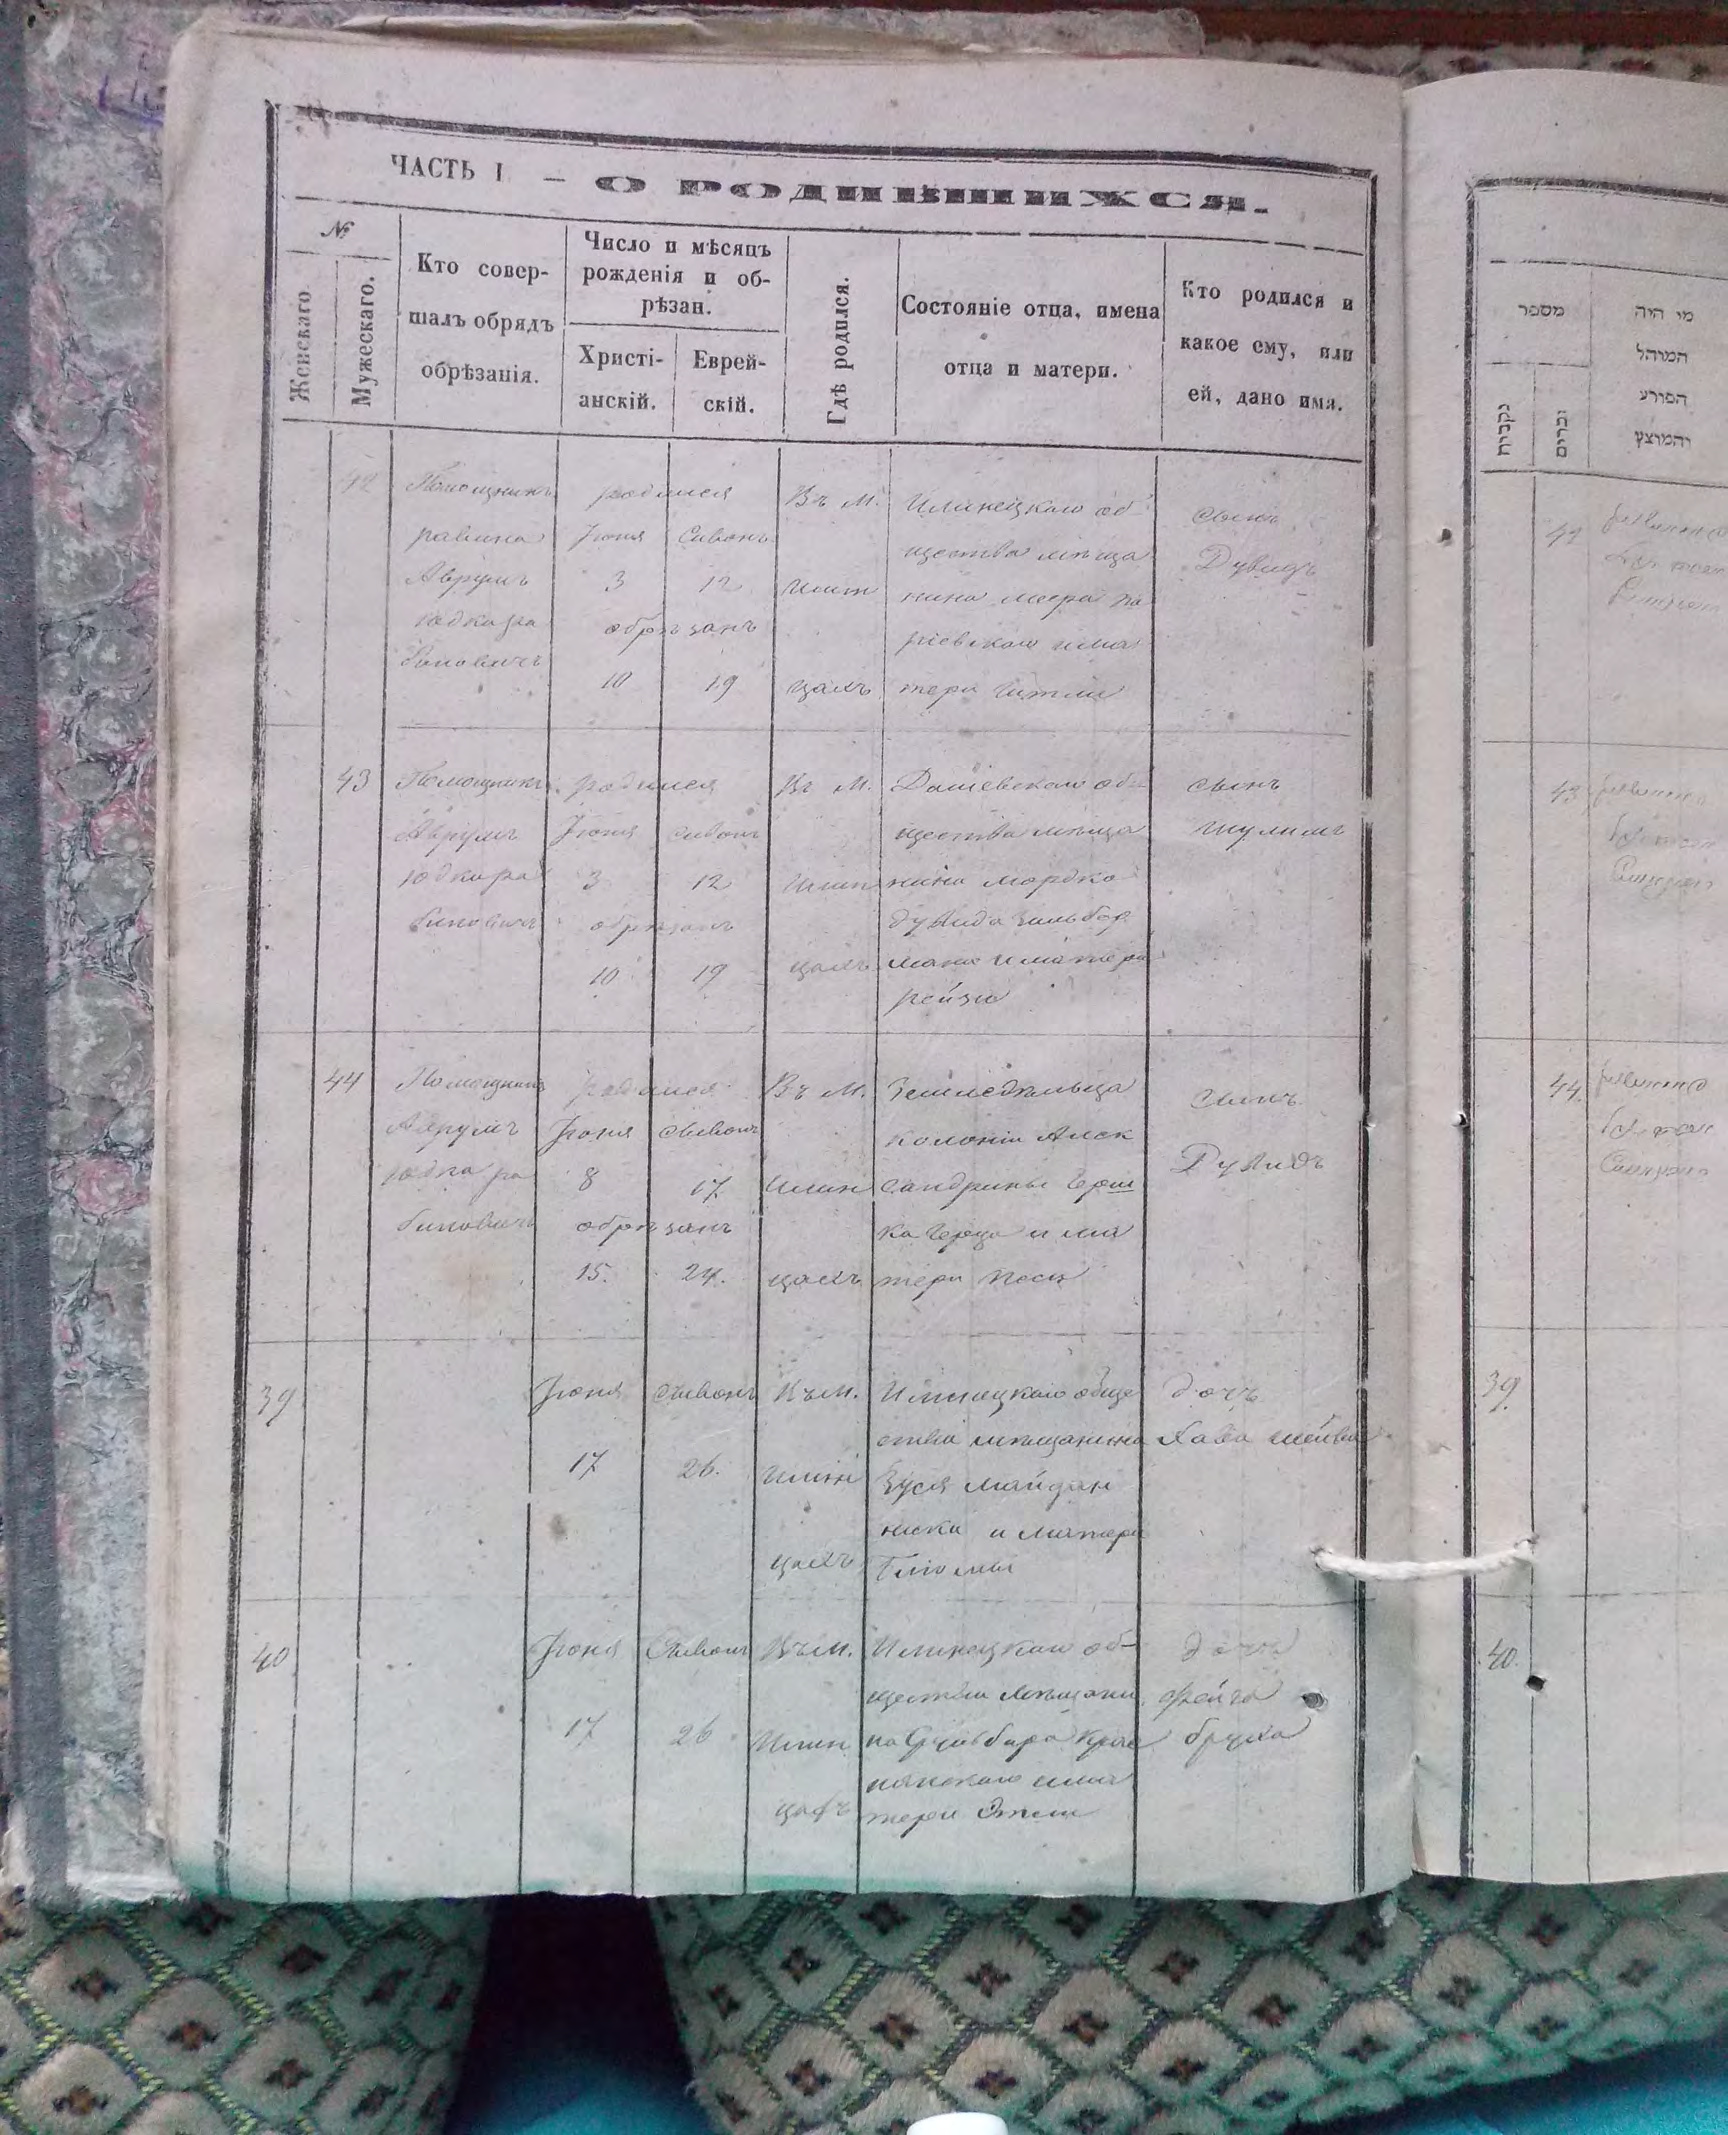 ЧАСТЬ I — О РОДИВШИХСЯ.
№
Женскаго
Мужескаго.
Кто совер-
шалъ обрядъ
обрѣзанія.
Число и мѣсяцъ
рожденія и об-
рѣзан.
Христі-
анскій.
Еврей-
скій.
Гдѣ родился.
Состояніе отца, имена
отца и матери.
Кто родился и
какое ему, или
ей, дано имя.
42
Помощникъ
равина
Аврумъ
Юдка Ра
биновичъ
родился
Іюня Сивонъ
3 12
обрѣзанъ
10 19
Въ М.
Илин
цахъ
Илинецкаго об
щества мѣща
нина Меера
има
тери
сынъ
Дувидъ
43
Помощникъ
Аврумъ
Юдка Ра
биновичъ
родился
Іюня Сивонъ
3 12
обрѣзанъ
10 19
Въ М.
Илин
цахъ
Дашевскаго об-
щества мѣща
нина Мордко
Дувида Зильбер
мана и матери
Рейзи
сынъ
Шулимъ
44
Помощникъ
Аврумъ
Юдка Ра
биновичъ
родился
Іюня Сивонъ
8 17
обрѣзанъ
15. 24.
Въ М.
Илин
цахъ
Земледѣльца
колоніи Алек
сандрины Герш
ка Герца и ма
тери Песи
сынъ
Дувидъ
39
Іюня Сивонъ
17 26.
Въ М.
Илин
цахъ
Илинецкаго обще
ства мѣщанина
Зуся Майдан
ника и матери
дочь
Хава
40
Іюня Сивонъ
17 26
Въ М.
Илин
цахъ
Илинецкаго об-
щества мѣщани
на Крас
нянскаго има
тери Этли
дочь
Фейга
Бруха
מספר
נקבות
זכרים
מי היה
המוהל
הפורע
והמוצץ
42
43
44
39
40